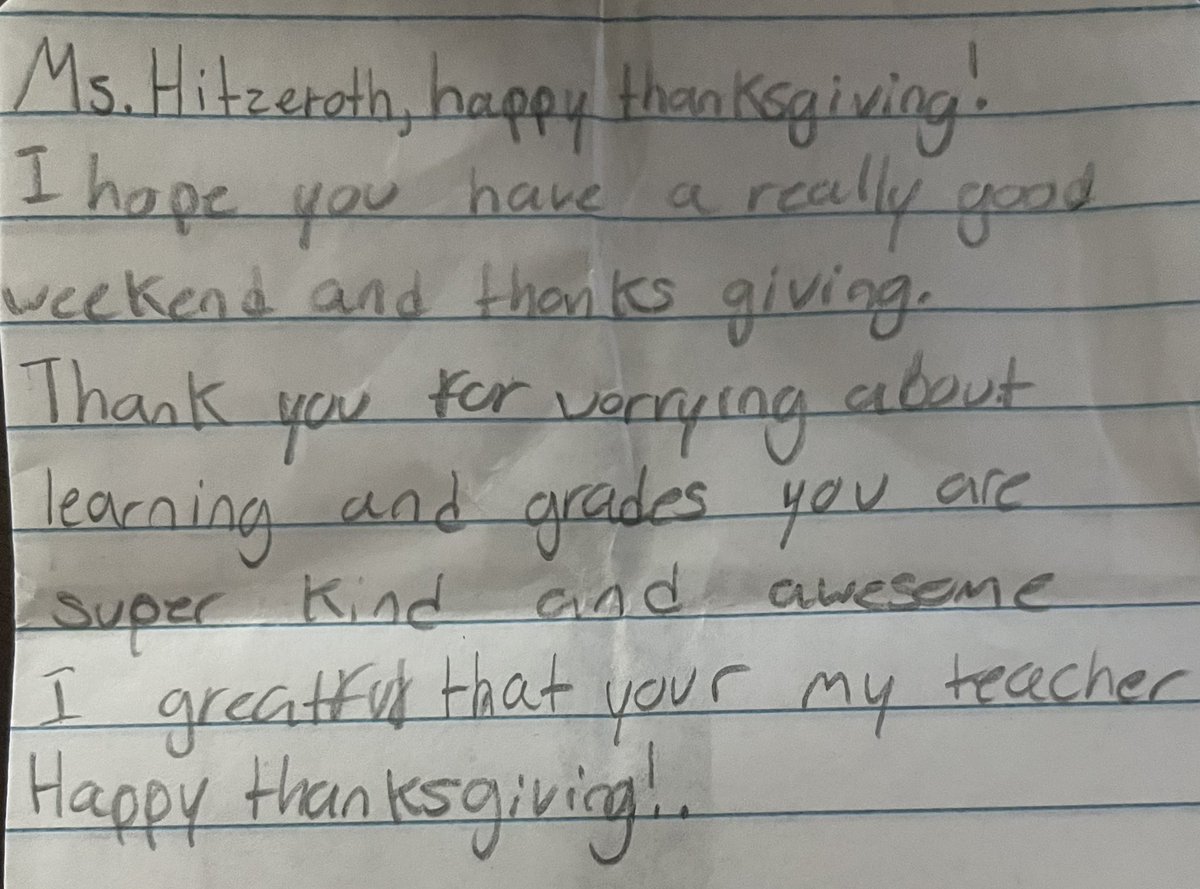 Ms. Hitzeroth, happy thanksgiving!
I hope you have a really good
weekend and thanks giving.
Thank you for vorrying about
learning and grades you are
super kind and awesome
I greatful that your my teacher
Happy thanksgiving!..